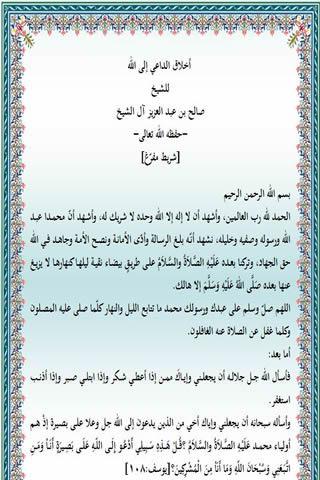 أخلاق الداعي إلى الله
للشيخ
صالح بن عبد العزيز آل الشيخ
-حفظه الله تعالى-
[شريط مفرّغ]
بسم الله الرحمن الرحيم
الحمد لله رب العالمين، وأشهد أن لا إله إلا الله وحده لا شريك له، وأشهد أنّ محمدا عبد
الله ورسوله وصفيه وخليله، نشهد أنّه بلـغ الرسالة وأدّى الأمانة ونصح الأمـة وجاهـد في الله
حق الجهاد، وتركنا بعـده عَلَيْهِ الصَّلاَةُ والسَّلاَمُ على طريقٍ بيضاء نقية ليلها كنهارها لا يزيغ
عنها بعده صَلَّى اللهُ عَلَيْهِ وَسَلَّمَ إلا هالك.
اللهم صلّ وسلم على عبدك ورسولك محمد ما تتابع الليل والنهار كلّما صلى عليه المصلون
وكلما غفل عن الصلاة عنه الغافلون.
أما بعد:
فأسأل الله جـل جلالـه أن يجعلني وإياك ممن إذا أعطي شكر وإذا ابتلي صبر وإذا أذنـب
استغفر.
وأسأله سبحانه أن يجعلني وإياك أخي من الذين يدعون إلى الله جل وعلا على بصيرة إذْ هـم
أولياء محمـد عَلَيْهِ الصَّلاَةُ والسَّلاَمُ ﴿قُـلْ هَـذِهِ سَبِيلِي أَدْعُو إِلَى اللَّهِ عَلَى بَصِيرَةٍ أَنَا وَمَـنْ
اتَّبَعَنِي وَسُبْحَانَ اللَّهِ وَمَا أَنَا مِنَ الْمُشْرِكِينَ﴾[يوسف:١٠٨]